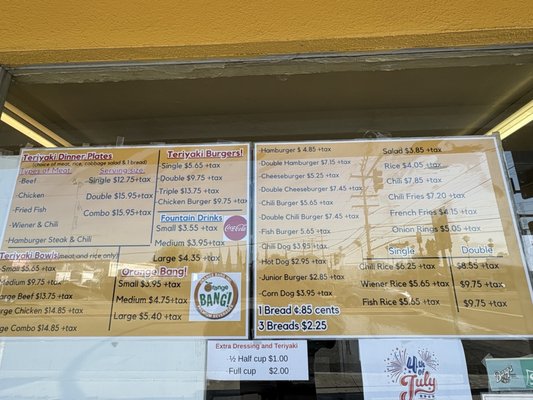 Teriyaki Dinner Plates
(choice of meat, rice, cabbage salad & 1 bread)
Types of Meat
Serving size:
-Beef
-Chicken
-Fried Fish
-Wiener & Chili
-Hamburger Steak & Chili
Single $12.75+tax
Double $15.95+tax
Combo $15.95+tax
Teriyaki Burgers!
Single $5.65 +tax
Double $9.75 +tax
Triple $13.75 +tax
Chicken Burger $9.75 +tax
Fountain Drinks
Small $3.55 +tax
Medium $3.95+tax
Large $4.35 +tax
Coca-Cola
Teriyaki Bowls (meat and rice only)
Small $5.65 +tax
Medium $9.75 +tax
Large Beef $13.75 +tax
Large Chicken $14.85 +tax
Large Combo $14.85 +tax
Orange Bang!
Small $3.95 +tax
Medium $4.75+tax
Large $5.40 +tax
BANG!
Hamburger $ 4.85 +tax
Double Hamburger $7.15 +tax
Cheeseburger $5.25 +tax
Double Cheeseburger $7.45 +tax
Chili Burger $5.65 +tax
Double Chili Burger $7.45 +tax
Fish Burger 5.65 +tax
Chili Dog $3.95 +tax
Hot Dog $2.95 +tax
Junior Burger $2.85 +tax
Corn Dog $3.95 +tax
1 Bread ¢.85 cents
3 Breads $2.25
Salad $3.85 +tax
Rice $4.05 +tax
Chili $7.85 +tax
Chili Fries $7.20 +tax
French Fries $4.15 +tax
Onion Rings $5.05 +tax
Single Double
Chili Rice $6.25 +tax $8.55 +tax
Wiener Rice $5.65 +tax $9.75 +tax
Fish Rice $5.65 +tax $9.75 +tax
Extra Dressing and Teriyaki
-½ Half cup $1.00
-Full cup $2.00
4th of
July